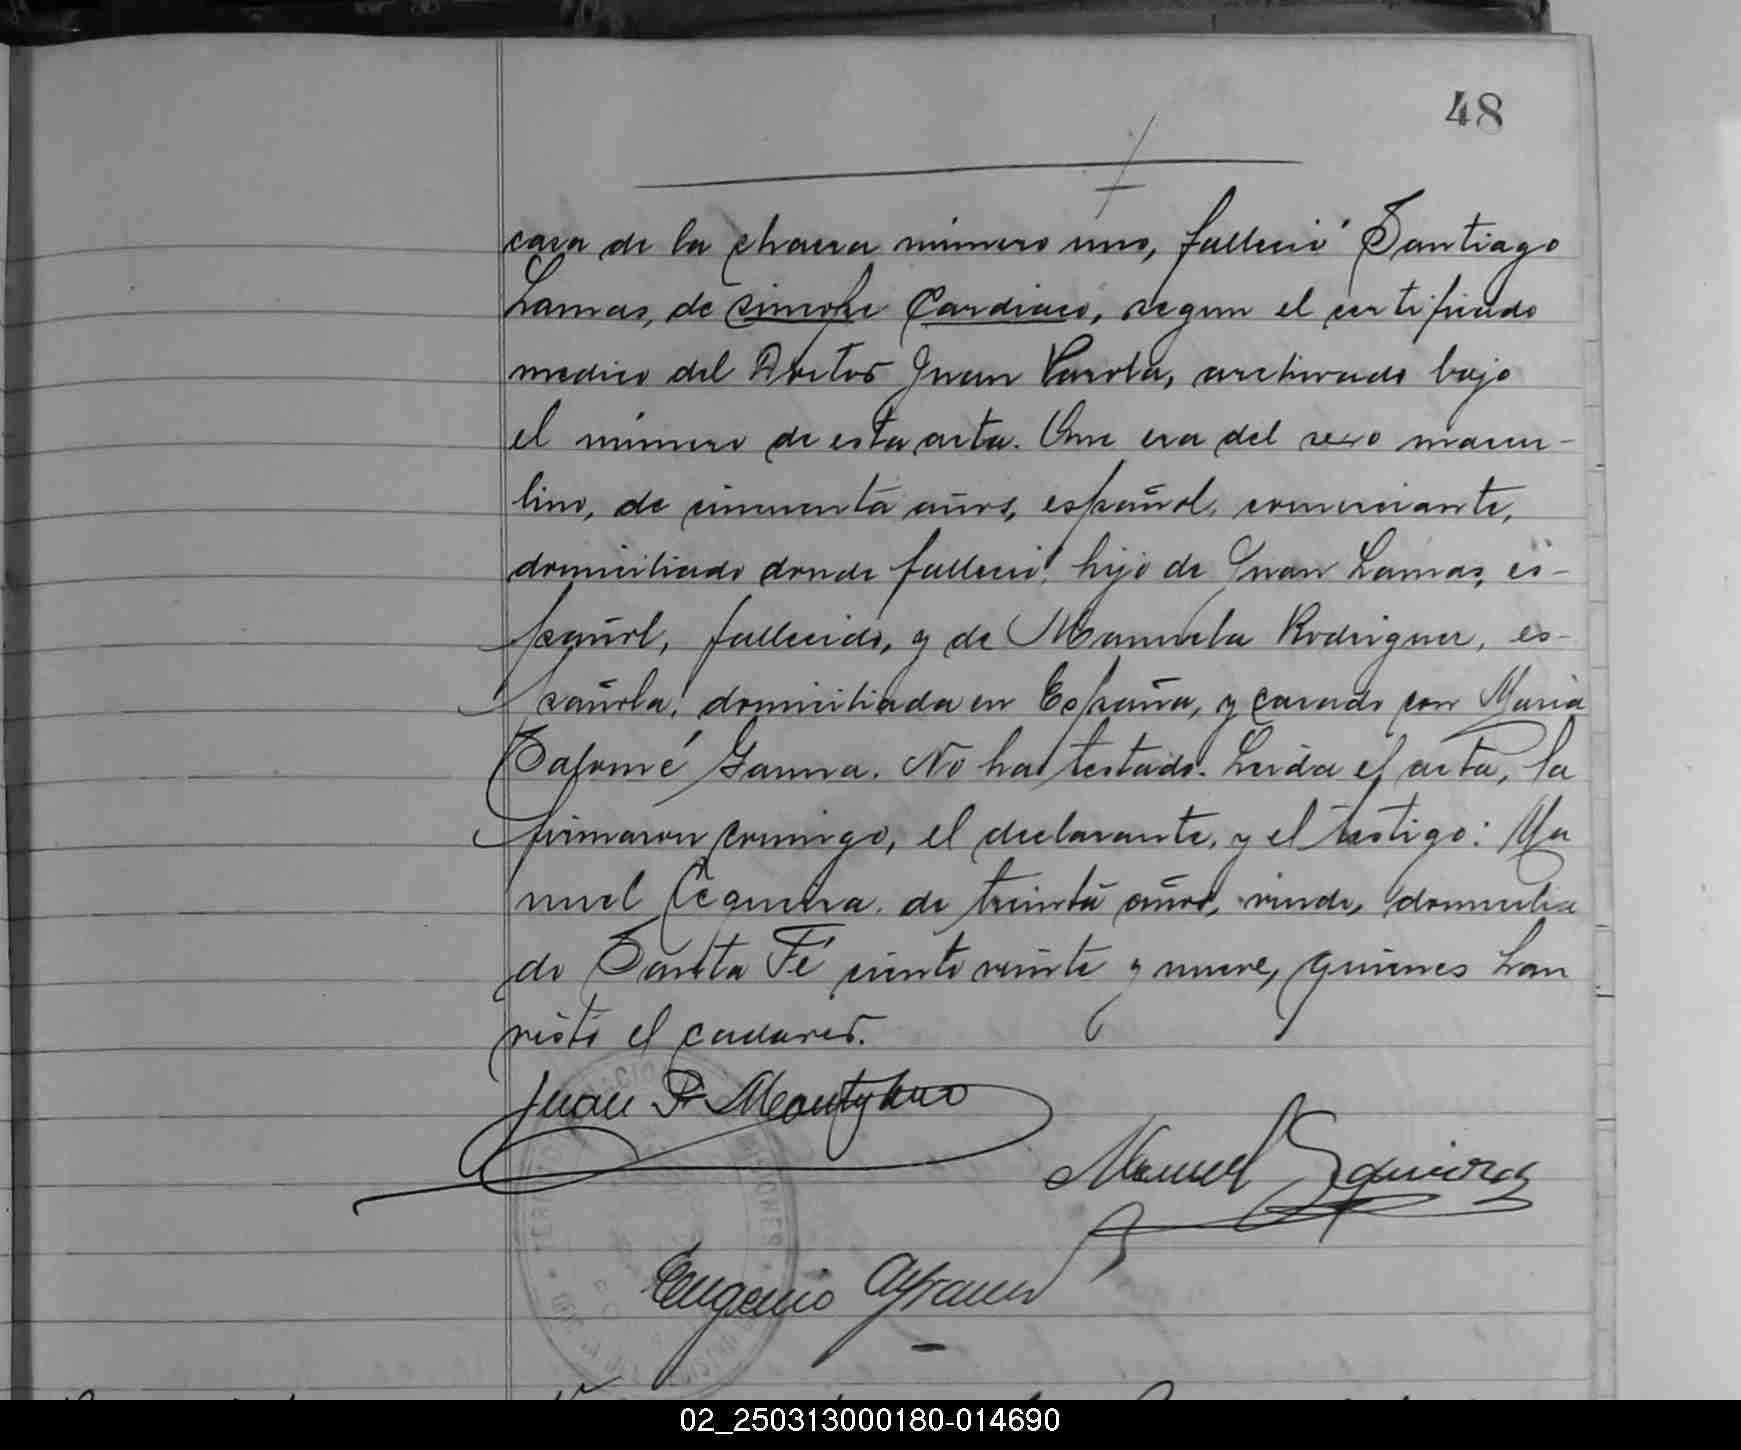 48
casa de la chacra número uno, falleció Santiago
Lamas, de síncope Cardiaco, segun el certificado
medico del Doctor Juan Parola, archivado bajo
el número de esta acta. Que era del sexo mascu-
lino, de cincuenta años, español, comerciante,
domiciliado donde falleció, hijo de Juan Lamas, es-
pañol, fallecido, y de Manuela Rodriguez, es-
pañola, domiciliada en España, y casado con Maria
Salomé Gauna. No ha testado. Leida el acta, la
firmaron conmigo, el declarante, y el testigo: Ma
nuel de treinta años, viudo, domicilia
do Santa Fé ciento veinte y nueve, quienes han
visto el cadaver.
Juan
Manuel
Eugenio
MISIONES
02_250313000180-014690